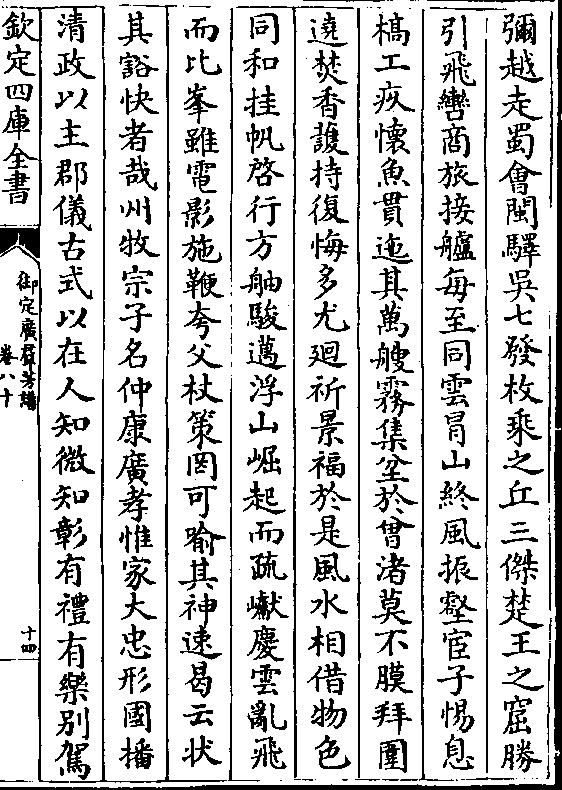 彌越走蜀會閩驛吳七發枚乗之丘三傑楚王之窟勝
引飛轡商旅接艫每至同雲冒山終風振壑宦子惕息
槁工疚懷魚貫迤其萬艘霧集坌於曾渚莫不膜拜圍
遶焚香護持復悔多尤迴祈景福於是風水相借物色
同和挂帆啓行方舳駿邁浮山崛起而疏巘慶雲亂飛
而比峯雖電影施鞭夸父杖策罔可喻其神速曷云状
其豁快者哉州牧宗子名仲康廣孝惟家大忠形國播
清政以主郡儀古式以在人知微知彰有禮有樂别駕
欽定四庫全書
御定廣羣芳譜
卷八十
十四